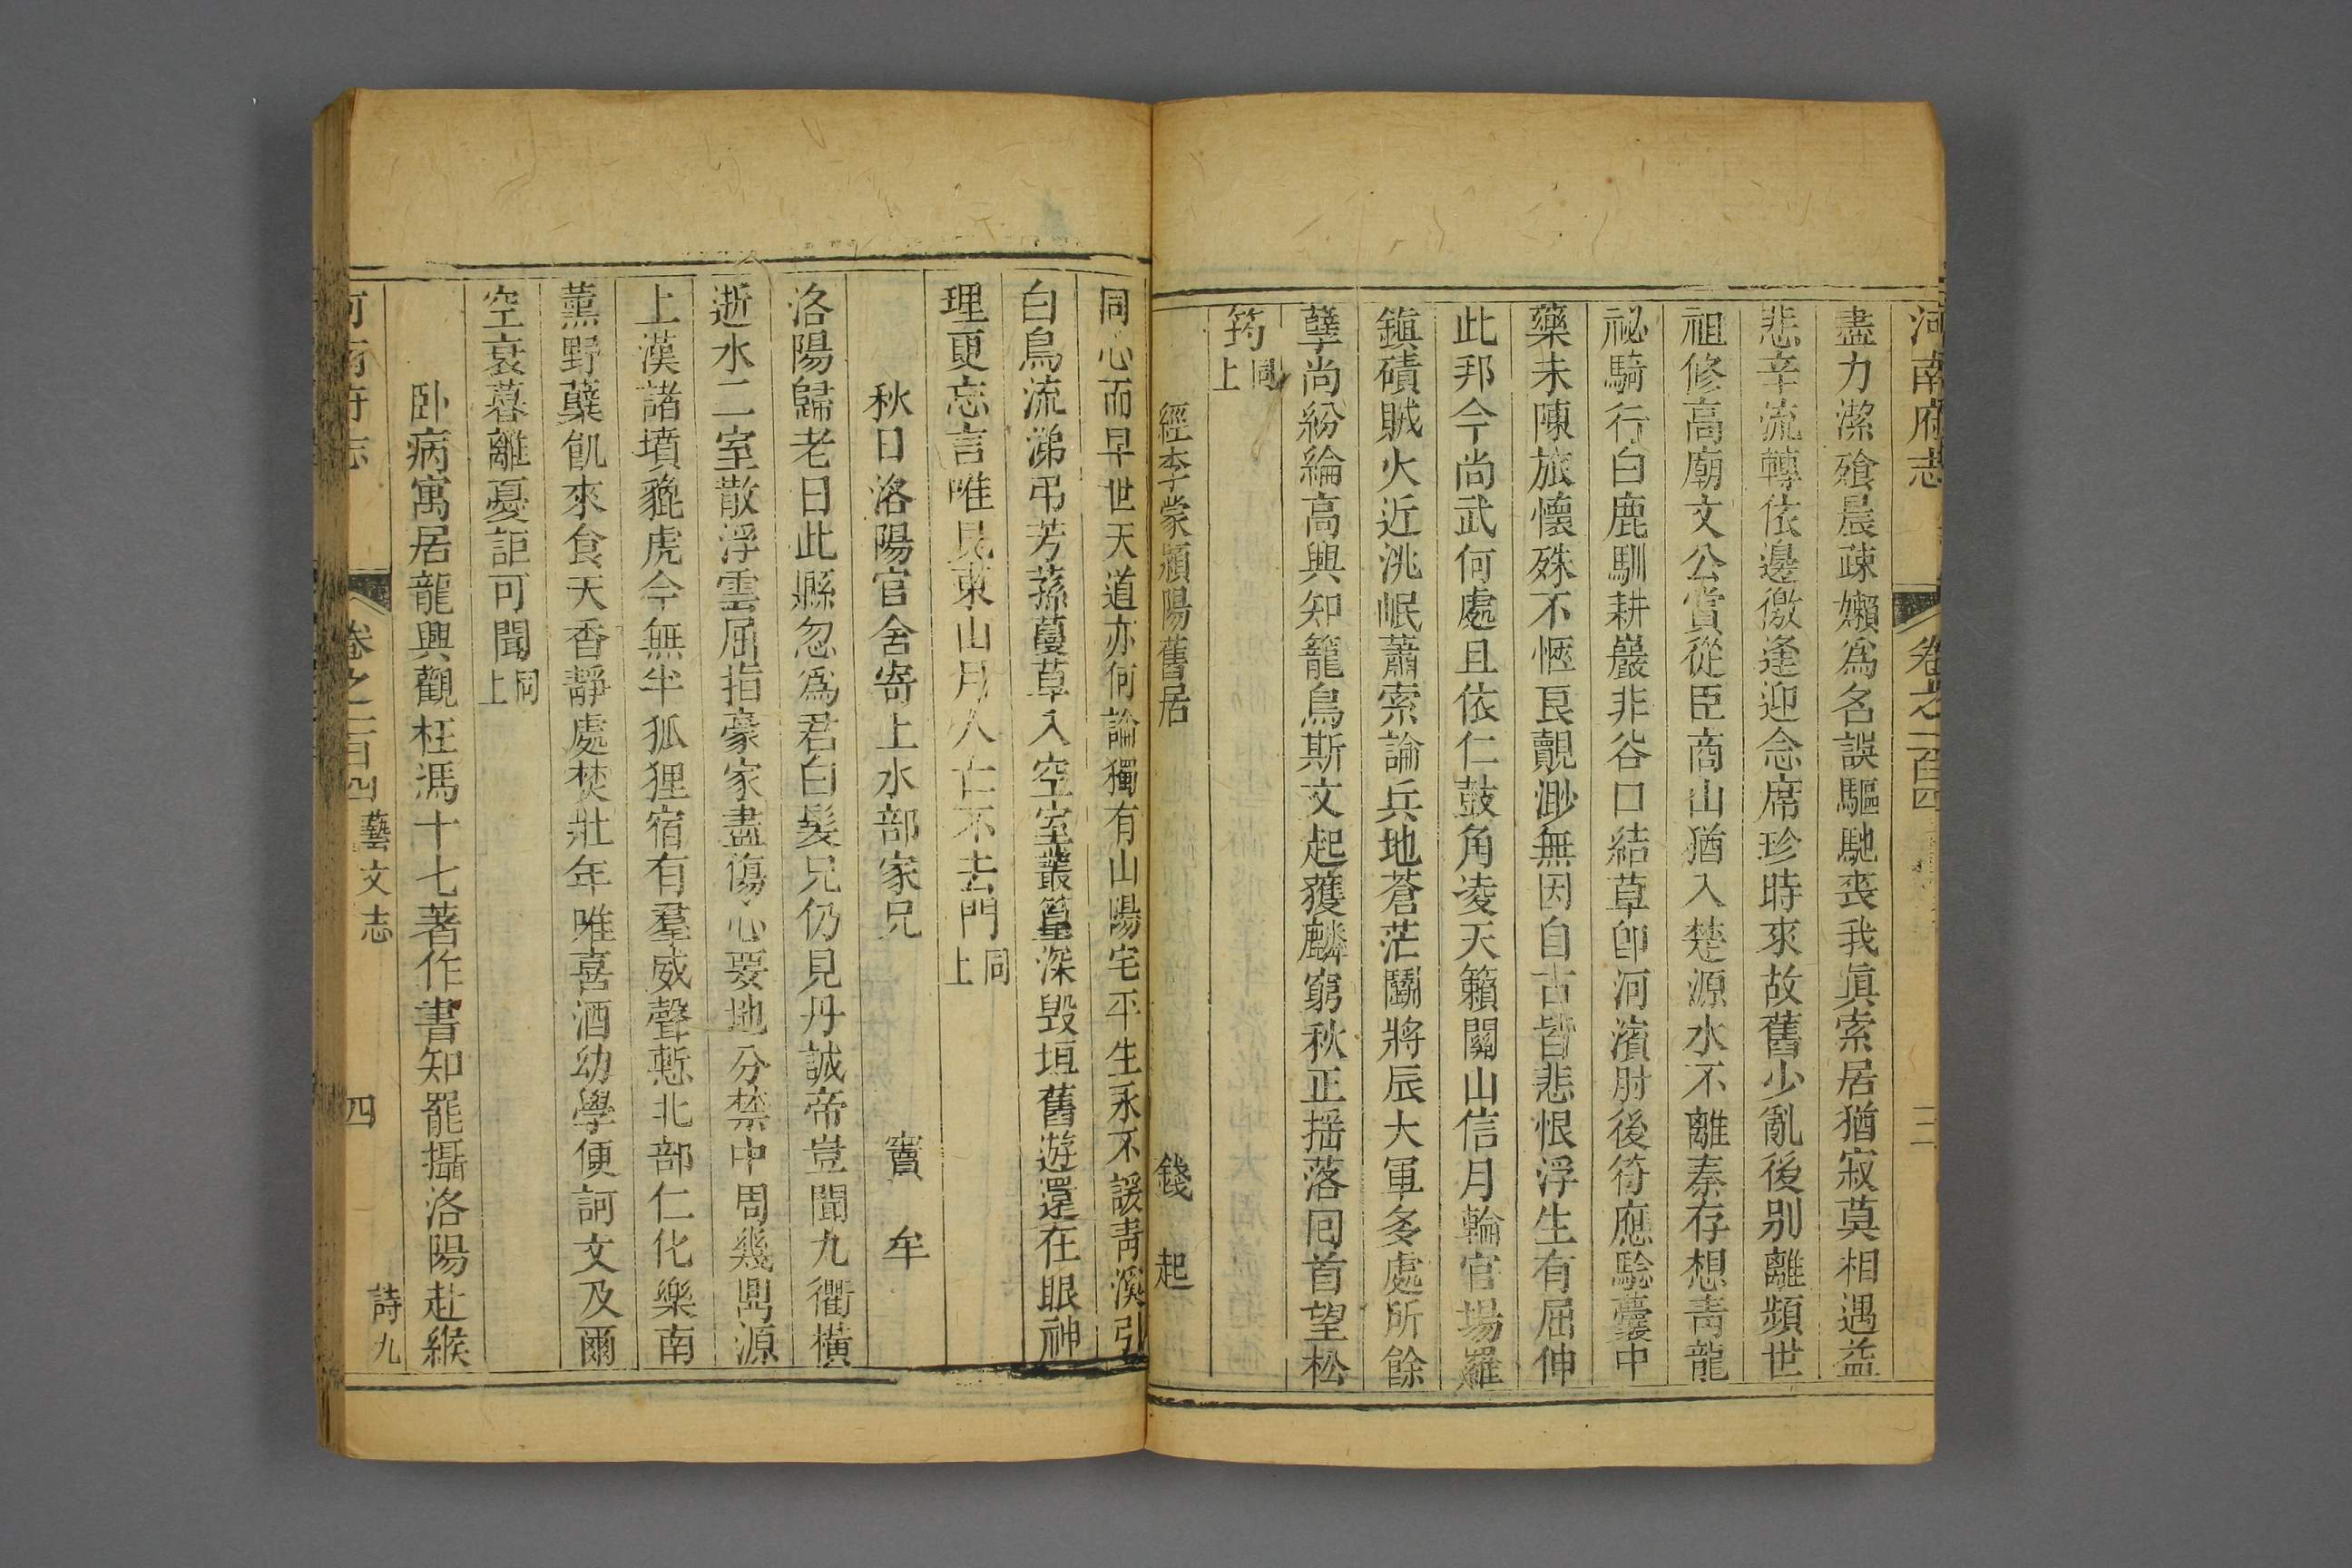 河南府志 卷之一百四 三
盡力潔飱晨疎嬾爲名誤驅馳喪我眞索居猶寂莫相遇益
悲辛流轉依邊徼逢迎念席珍時來故舊少亂後别離頻世
祖修高廟文公賞從臣商山猶入楚源水不離秦存想青龍
祕騎行白鹿馴耕巖非谷口結草卽河濱肘後符應驗囊中
藥未陳旅懷殊不愜良覿渺無因自古皆悲恨浮生有屈伸
此邦今尚武何處且依仁鼓角凌天籟關山信月輪官場羅
鎭磧賊火近洮岷蕭索論兵地蒼茫鬬將辰大軍多處所餘
孽尚紛綸高興知籠鳥斯文起獲麟窮秋正揺落囘首望松
筠同上
經李蒙潁陽舊居 錢起
同心而早世天道亦何論獨有山陽宅平生永不諼靑溪引
白鳥流涕弔芳蓀蔓草入空室叢篁深毁垣舊遊還在眼神
理更忘言唯見東山月人亡不去門同上
秋日洛陽官舍寄上水部家兄 竇牟
洛陽歸老日此縣忽爲君白髮兄仍見丹誠帝豈聞九衢橫
逝水二室散浮雲屈指豪家盡傷心要地分禁中周幾鼎源
上漢諸墳貔虎今無半狐狸宿有羣威聲慙北部仁化樂南
薰野蘖飢來食天香靜處焚壯年唯喜酒幼學便訶文及爾
空衰暮離憂詎可聞同上
卧病寓居龍興觀枉馮十七著作書知罷攝洛陽赴緱
河南府志 卷之一百四 藝文志 四 詩九